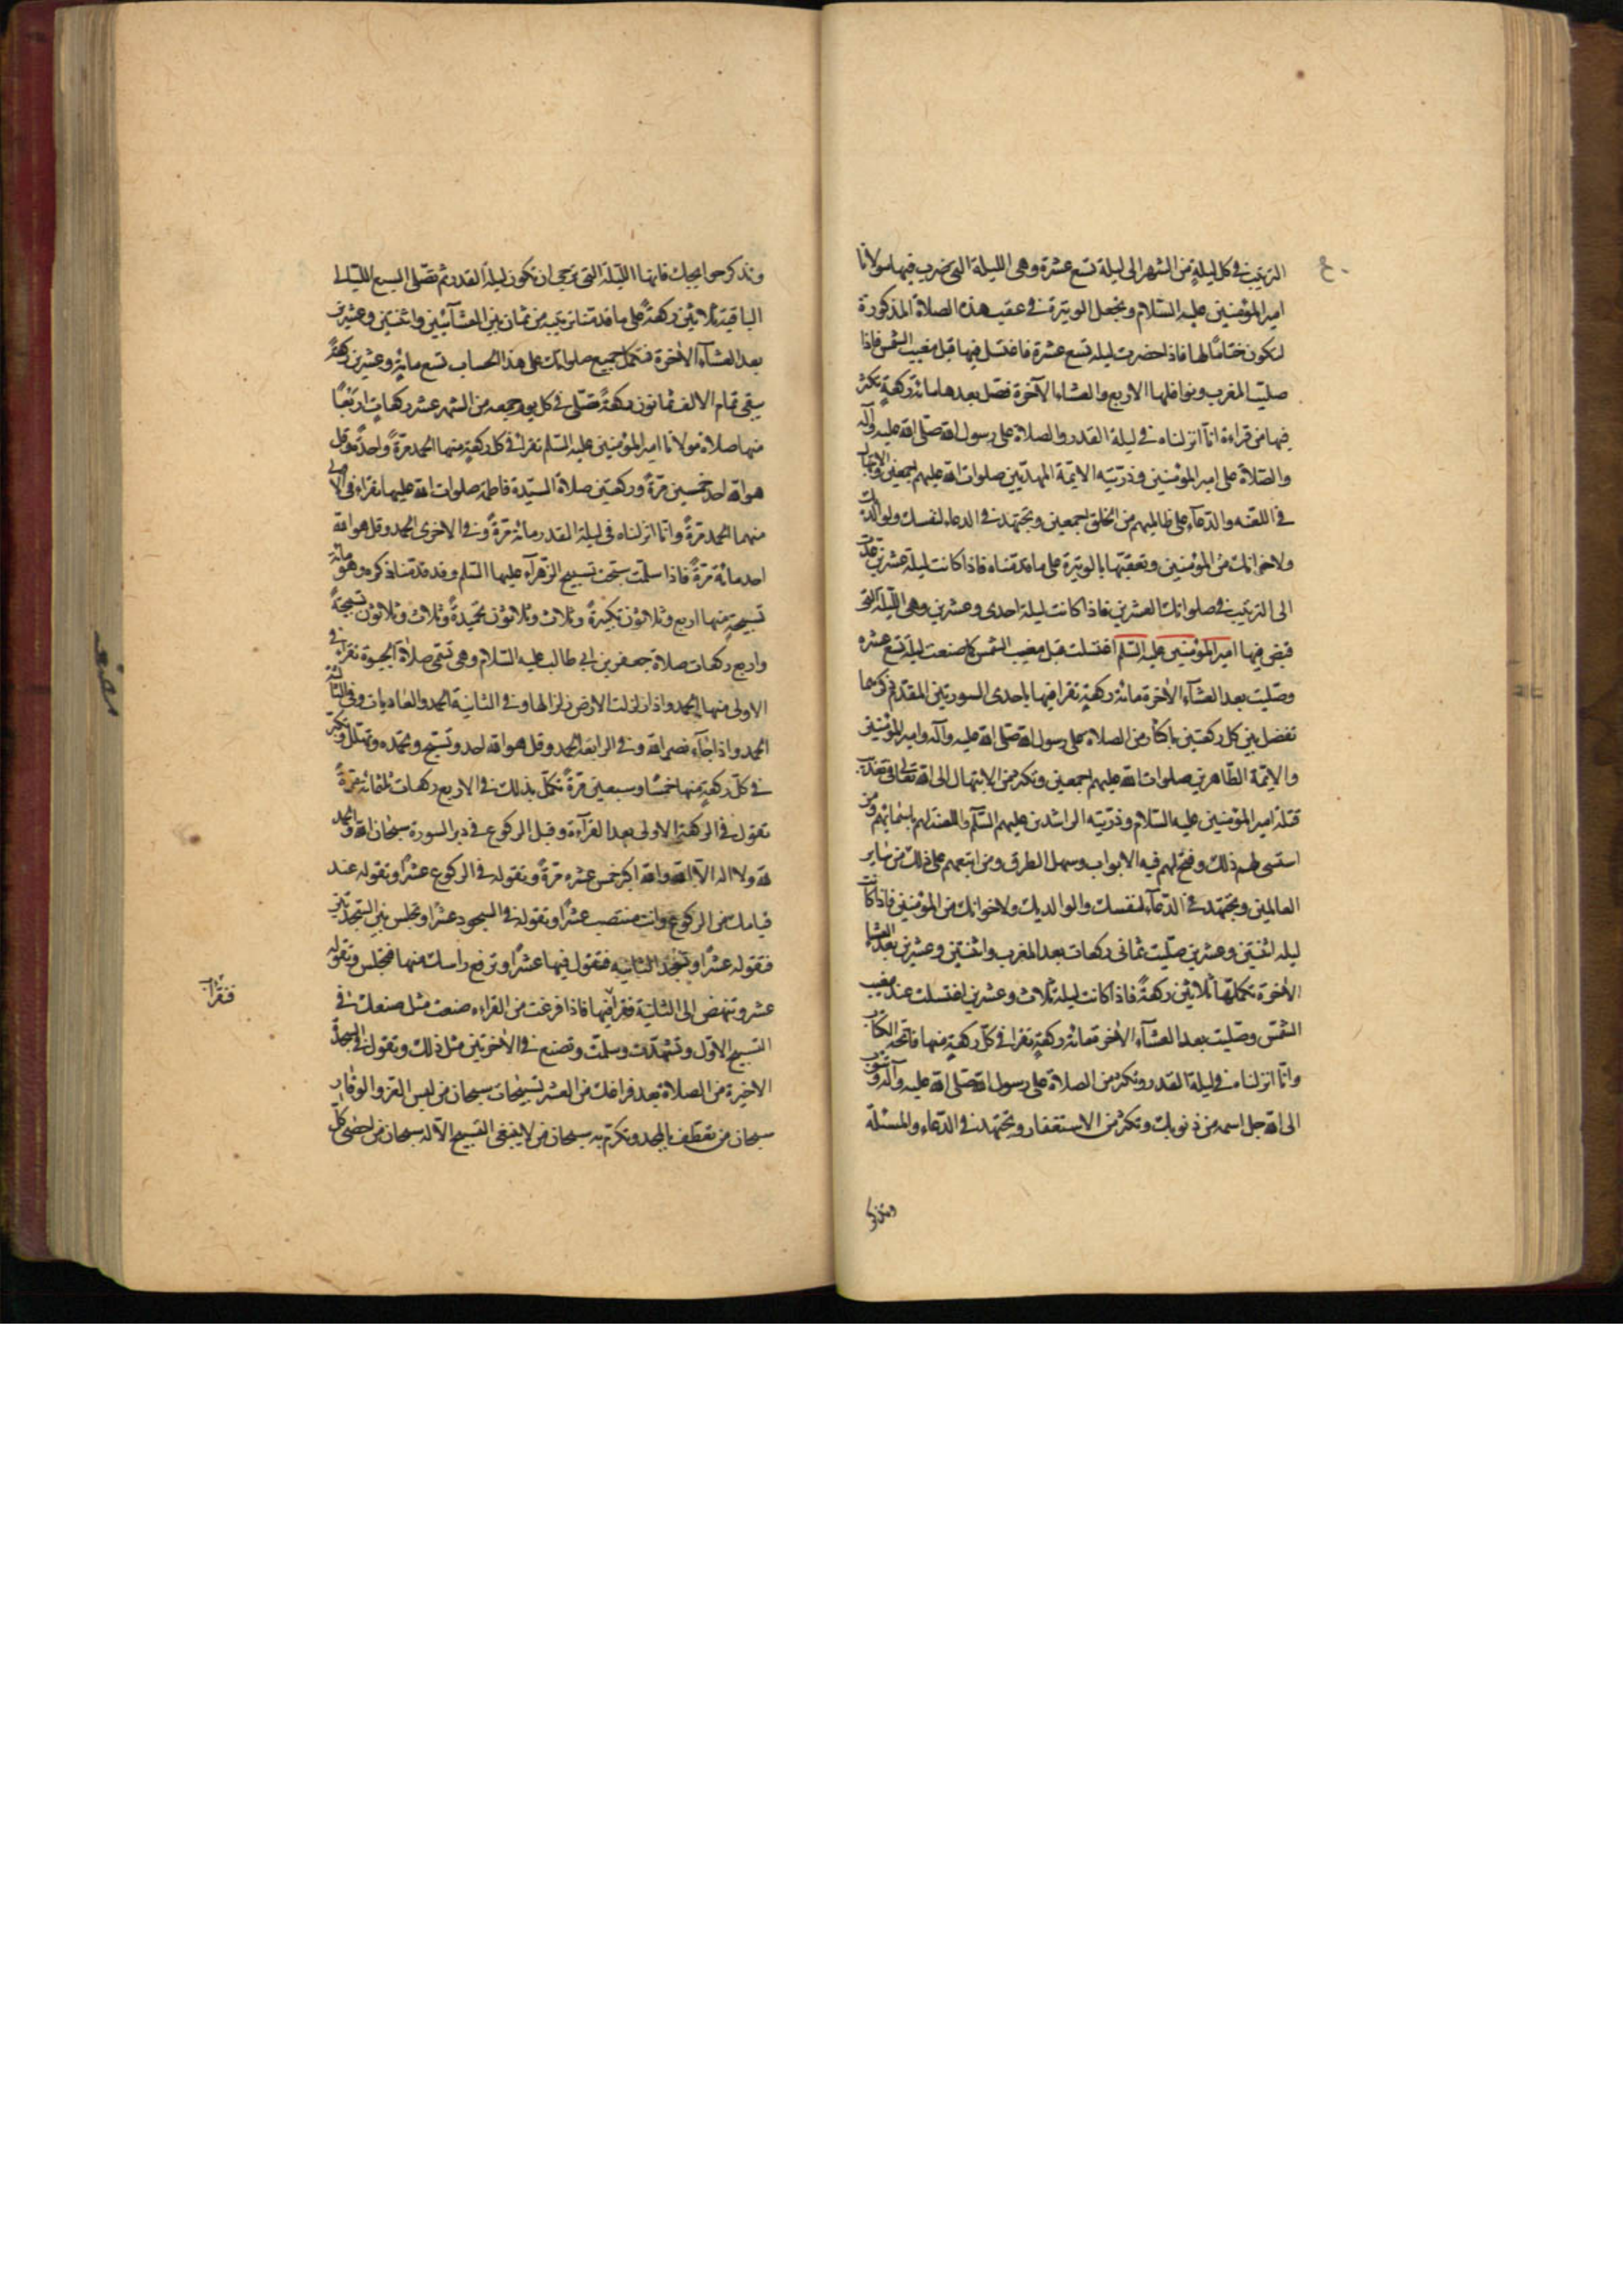 الترتيب في كل ليلة من الشهر الى ليلة تسع عشرة وهي الليلة التي ضرب فيها مولانا
امير المؤمنين عليه السلام وتجعل الوتيرة في عقيب هذه الصلاة المذكورة
لتكون ختاما لها فاذا حضرت ليلة تسع عشرة فاغتسل فيها قبل مغيب الشمس فاذا
صليت المغرب ونوافلها الاربع والعشاء الآخرة فصل بعدها مائة ركعة تكثر
فيها من قراءة انا انزلناه في ليلة القدر والصلاة على رسول الله صلى الله عليه وآله
والصلاة على امير المؤمنين وذريته الائمة المهديين صلوات الله عليهم اجمعين والابتهال
في اللعنه والدعاء على ظالميهم من الخلق اجمعين وتجتهد في الدعاء لنفسك ولوالديك
ولاخوانك من المؤمنين وتعقبها بالوتيرة على ما قدمناه فاذا كانت ليلة عشرين عدت
الى الترتيب في صلواتك العشرين فاذا كانت ليلة احدى وعشرين وهي الليلة التي
قبض فيها امير المؤمنين عليه السلم اغتسلت قبل مغيب الشمس كما صنعت ليلة تسع عشره
وصليت بعد العشاء الاخرة مائة ركعة تقرا فيها باحدى السورتين المقدم ذكرهما
تفصل بين كل ركعتين باكثار من الصلاة على رسول الله صلى الله عليه وآله وامير المؤمنين
والائمة الطاهرين صلوات الله عليهم اجمعين وتكثر من الابتهال الى الله تعالى في تعذيب
قتلة امير المؤمنين عليه السلام وذريته الراشدين عليهم السلم واللعنة لهم باسمائهم ومن
اسس لهم ذلك وفتح لهم فيه الابواب وسهل الطرق ومن اتبعهم على ذلك من ساير
العالمين وتجتهد في الدعاء لنفسك والوالديك ولاخوانك من المؤمنين فاذا كانت
ليله اثنتين وعشرين صليت ثماني ركعات بعد المغرب واثنتين وعشرين بعد العشاء
الاخرة تكملتها ثلاثين ركعة فاذا كانت ليلة ثلاث وعشرين اغتسلت عند مغيب
الشمس وصليت بعد العشاء الاخرة مائة ركعة تقرا في كل ركعة منها فاتحة الكتاب
وانا انزلناه في ليلة القدر وتكثر من الصلاة على رسول الله صلى الله عليه وآله وتتوب
الى الله جل اسمه من ذنوبك وتكثر من الاستغفار وتجتهد في الدعاء والمسئلة
وتذكر
وتذكر حوايجك فانها الليلة التي ترجى ان تكون ليلة القدر ثم تصلى السبع الليالى
الباقية ثلاثين ركعة على ما قدمنا ترتيبه من ثمان بين العشائين واثنتين وعشرين
بعد العشاء الاخرة فتكمل جميع صلواتك على هذا الحساب تسع مائة وعشرين ركعة
يبقى تمام الالف ثمانون ركعة تصلى في كل يوم جمعه من الشهر عشر ركعات اربعا
منها صلاة مولانا امير المؤمنين عليه السلم تقرا في كل ركعة منها الحمد مرة واحدة وقل
هو الله احد خمسين مرة وركعتين صلاة السيدة فاطمة صلوات الله عليها تقراء في الاولى
منهما الحمد مرة وانا انزلناه في ليلة القدر مائة مرة وفي الاخرى الحمد وقل هو الله
احد مائة مرة فاذا سلمت سبحت تسبيح الزهراء عليها السلم وقد قدمنا ذكره وهو مائة
تسبيحة منها اربع وثلاثون تكبيرة وثلاث وثلاثون تحميدة وثلاث وثلاثون تسبيحة
واربع ركعات صلاة جعفر بن ابي طالب عليه السلام وهي تسمى صلاة الحبوة تقراء في
الاولى منها الحمد واذا زلزلت الارض زلزالها وفي الثانية الحمد والعاديات وفي الثالثة
الحمد واذا جاء نصر الله وفي الرابعة الحمد وقل هو الله احد وتسبح وتحمده وتهلل وتكبر
في كل ركعة منها خمسا وسبعين مرة تكمل بذلك في الاربع ركعات ثلثمائة مرة
تقول في الركعة الاولى بعد القراءة وقبل الركوع في دبر السورة سبحان الله والحمد
لله ولا اله الا الله والله اكبر خمس عشره مرة وتقوله في الركوع عشرا وتقوله عند
قيامك من الركوع وانت منتصب عشرا وتقوله في السجود عشرا وتجلس بين السجدتين
فتقوله عشرا وتسجد الثانيه فتقول فيها عشرا وترفع راسك منها فتجلس وتقوله
عشر وتنهض الى الثانية فتقرا فيها فاذا فرغت من القراءه صنعت مثل صنعك في
التسبيح الاول وتشهدت وسلمت وتصنع في الاخرتين مثل ذلك وتقول في السجدة
الاخيرة من الصلاة بعد فراغك من العشر تسبيحات سبحان من لبس العز والوقار
سبحان من تعطف بالمجد وتكرم به سبحان من لا ينبغى التسبيح الا له سبحان من احصى كل
فتقرا